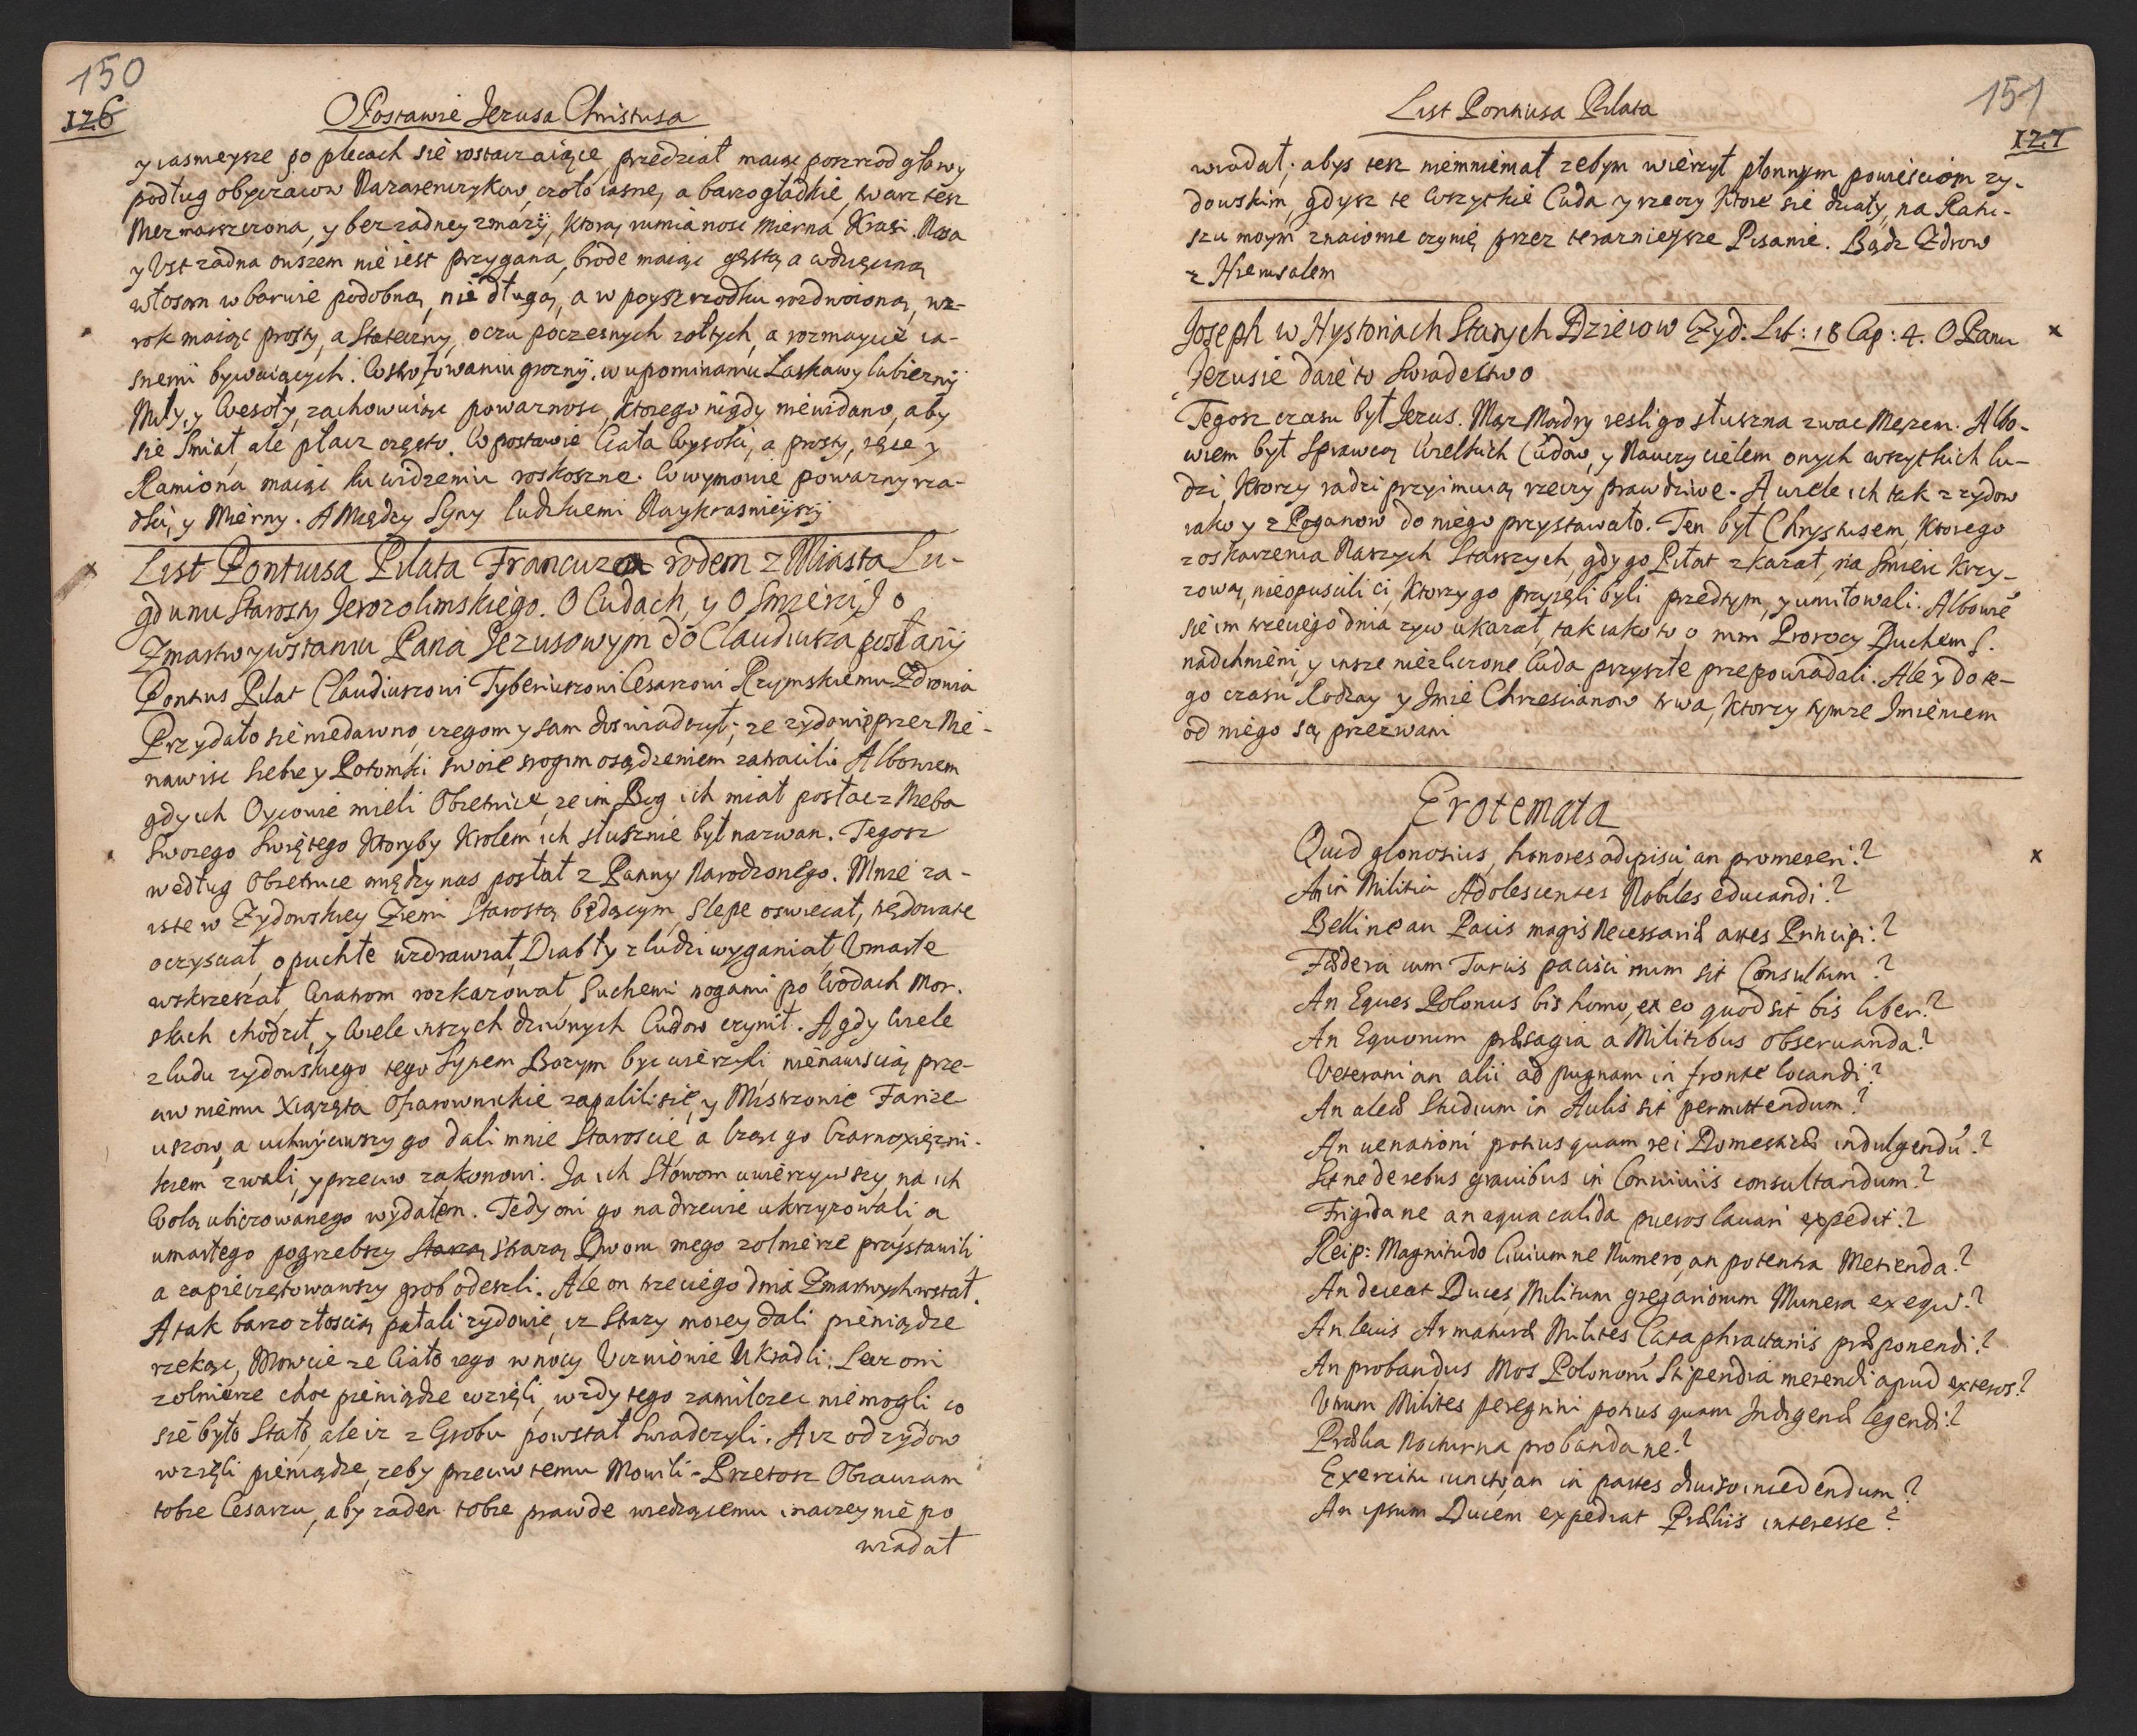 150
126
O Postawie Jezusa Christusa
y iasnieysze po plecach się rostaczaiące, przedział maiąc poszrod głowy
podług obyczaiow Nazareńczykow, czoło iasne, a barzo gładkie, twarz tesz
Niezmarszczona, y bez zadney zmazy, ktorą rumianosc mierna Krasi. Nosa
y Ust zadna owszem nie iest przygana, brode maiąc gęstą a wdzięczną
włosom w barwie podobną, nie długą, a w poyszrzodku rozdwoioną, wz-
rok maiąc prosty, a Stateczny, oczu poczesnych zołtych, a rozmaycie ia-
snemi bywaiących. W strofowaniu grozny, w upominaniu Łaskawy lubiezny
Miły, y Wesoły, zachowuiąc powaznosc, ktorego nigdy nie widano, aby
się Smiał, ale płacz często. W postawie Ciała Wysoki, a prosty, ręce y
Ramiona maiąc ku widzeniu roskoszne. W wymowie powazny rza-
dki, y Mierny. A Między Syny ludzkiemi Naykrasnieyszy
List Pontiusa Piłata Francuza rodem z Miasta Lu-
gdunu Starosty Jerozolimskiego. O Cudach, y O Smierci, J o
Zmartwywstaniu Pana Jezusowym do Claudiusza posłany
Pontus Piłat Claudiuszowi Tyberiuszowi Cesarzowi Rzymskiemu Zdrowia
Przydało się niedawno, czegom y sam doswiadczył; ze zydowie przez Nie-
nawisc Siebie y Potomki swoie srogim osądzeniem zatracili. Albowiem
gdy ich Oycowie mieli Obietnicę, ze im Bog ich miał posłac z Nieba
Swoiego Swiętego Ktoryby Krolem ich słusznie był nazwan. Tegosz
według Obietnice między nas posłał z Panny Narodzonego. Mnie za-
iste w Zydowskiey Ziemi Starostą będącym, Slepe oswiecał, trędowate
oczyscał, opuchłe uzdrawiał, Diabły z ludzi wyganiał, Umarłe
wskrzeszał, Wiatrom rozkazował, Suchemi nogami po Wodach Mor-
skich chodził, y Wiele inszych dziwnych Cudow czynił. A gdy Wiele
z ludu zydowskiego tego Synem Bozym byc wierzyli nienawiscią prze-
ciw niemu Xiązęta Ofiarownickie zapalili się, y Mistrzowie Farize-
uszow, a uchwyciwszy go dali mnie Staroscie, a Czesc go Czarnoxięzni-
kiem zwali, y przeciw zakonowi. Ja ich Słowom uwierzywszy, na ich
Wolą ubiczowanego wydałem. Tedy oni go na drzewie ukrzyzowali, a
umarłego pogrzebszy Straz straz Dworu mego zolnierze przystawili
a zapieczętowawszy grob odeszli. Ale on trzeciego dnia Zmartwychwstał.
A tak barzo złoscią pałali zydowie, iz Strazy moiey dali pieniądze
rzekąc, Mowcie ze Ciało iego w nocy Uczniowie Ukradli. Lecz oni
zolnierze choc pieniądze wzięli, wzdy tego zamilczec nie mogli co
się było Stało, ale iz z Grobu powstał Swiadczyli. A iz od zydow
wzięli pieniądze, zeby przeciw temu Mowili. Przetosz Obiawiam
tobie Cesarzu, aby zaden tobie prawde wiedzącemu inaczey nie po
wiadał
151
127
List Pontiusa Piłata
wiadał; abys tesz niemniemał zebym wierzył płonnym powiesciom zy-
dowskim, gdysz te Wszytkie Cuda y rzeczy ktore się działy, na Ratu-
szu moym znaiome czynię przez teraznieysze Pisanie. Bądz Zdrow
z Hierusalem
Joseph w Hystoriach Starych Dzieiow Zyd: Lib: 18 Cap: 4. O Panu x
Jezusie daie to Swiadectwo
Tegosz czasu był Jezus. Mąz Mądry iesli go słuszna zwac Męzem. Albo-
wiem był Sprawcą Wielkich Cudow, y Nauczycielem onych wszytkich lu-
dzi, Ktorzy radzi przyimuią rzeczy prawdziwe. A wiele ich tak z zydow
iako y z Poganow do niego przystawało. Ten był Chrystusem, Ktorego
z oskarzenia Naszych Starszych, gdy go Piłat zkazał, na Smierc Krzy-
zową, nieopuscili ci, Ktorzy go przyięli byli przedtym, y umiłowali. Albowie
się im trzeciego dnia zyw ukazał, tak iako to o nim Prorocy Duchem S.
nadchnieni, y insze niezliczone Cuda przyszłe przepowiadali. Ale y do te-
go czasu Rodzay y Jmie Chrzescianow trwa, Ktorzy tymze Jmieniem
od niego są przezwani
Erotemata
Quid gloriosius, honores adipisci an promereri? x
An in Militia Adolescentes Nobiles educandi?
Belline an Pacis magis Necessariæ artes Principi?
Fœdera cum Turcis pacisci num sit Consultum?
An Eques Polonus bis homo, ex eo quod sit bis liber?
An Equorum præsagia a Militibus observanda?
Veterani an alii ad pugnam in fronte locandi?
An aleæ Studium in Aulis sit permittendum?
An venationi potius quam rei Domesticæ indulgendu?
Sitne de rebus gravibus in Conviviis consultandum?
Frigida ne an aqua calida pueros lavari expedit?
Reip: Magnitudo Civiumne Numero, an potentia Metienda?
An deceat Duces, Militum gregariorum Munera exequi?
An levis Armaturæ Milites Cataphractariis præponendi?
An probandus Mos Polonorū Stipendia merendi apud exteros?
Utrum Milites peregrini potius quam Indigenæ legendi?
Prælia Nocturna probanda ne?
Exercitu iuncto, an in partes diviso incedendum?
An ipsum Ducem expediat Præliis interesse?